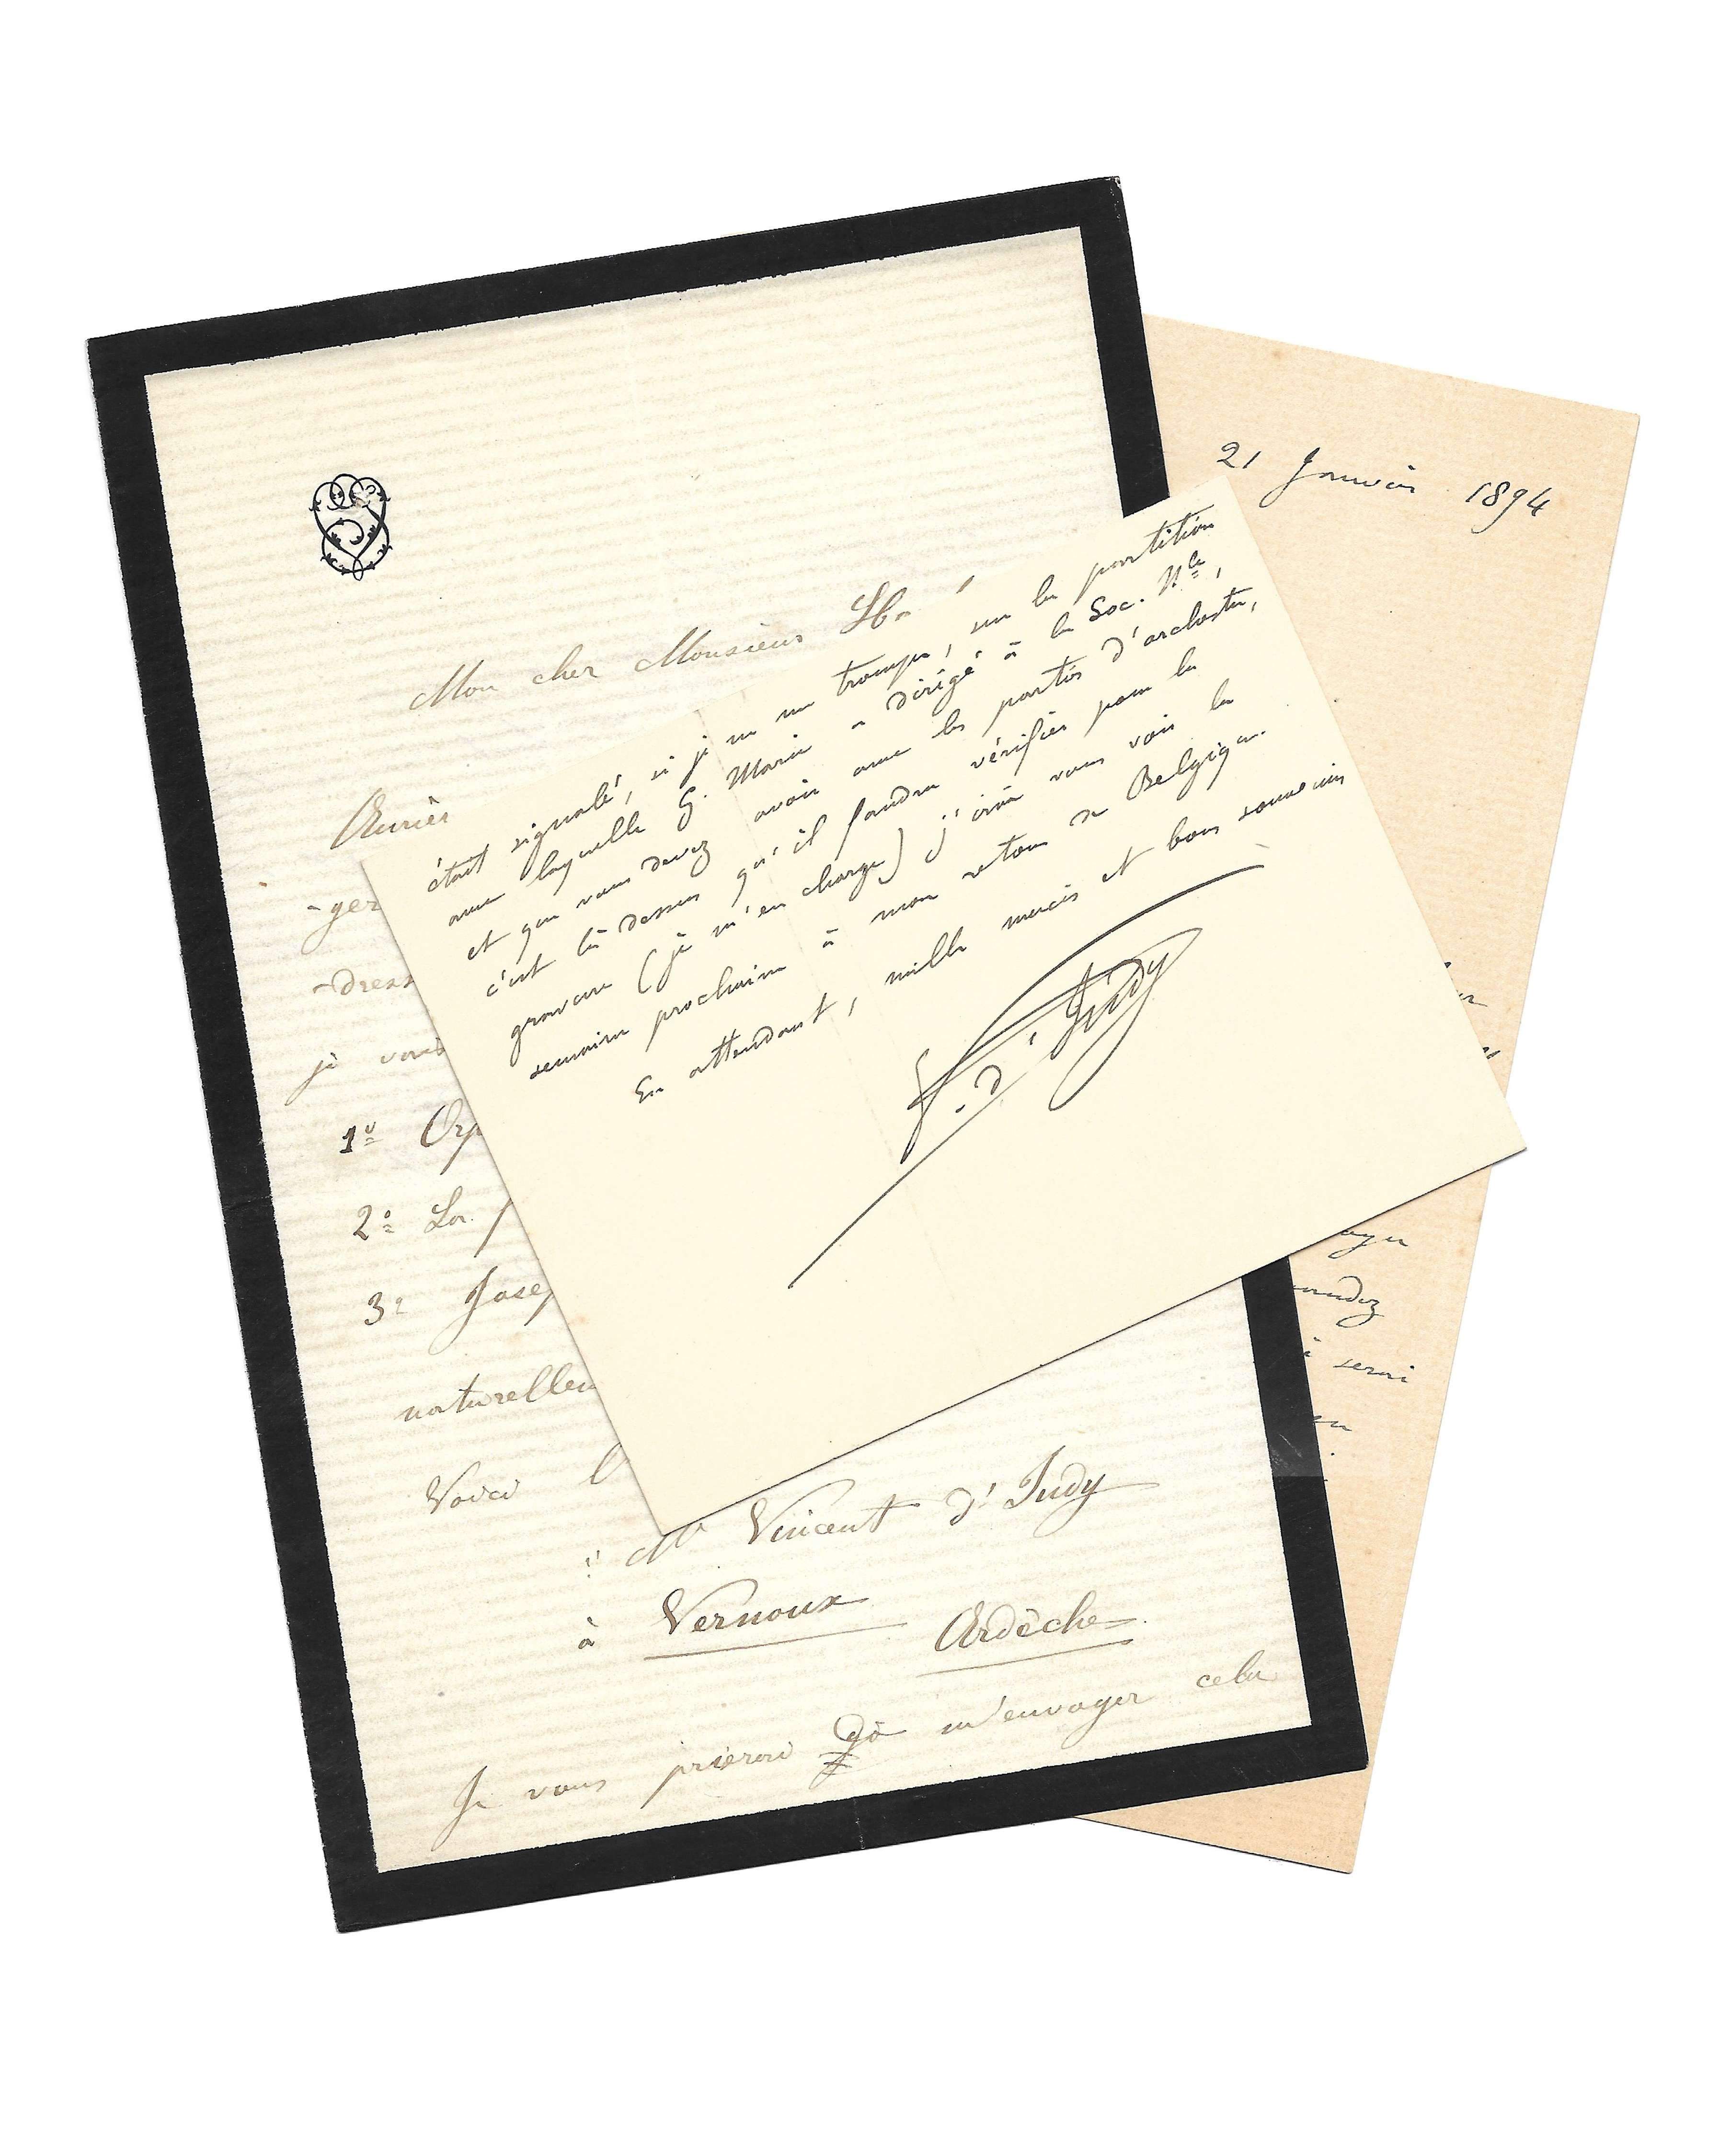 21 Janvier 1894
Mon cher Monsieur
Auriez
-gea
-dress
je vous
1º Orp
2º La
3º Josep
naturellem
Voici l
à Mr Vincent d'Indy
à Vernoux Ardèche
Je vous prierai de m'envoyer cela
était signalé, si je ne me trompe, sur la partition
avec laquelle G. Marie a dirigé à la Soc. Nle,
et que vous devez avoir avec les parties d'orchestre,
c'est là dessus qu'il faudra vérifier pour la
gravure (je m'en charge) j'irai vous voir la
semaine prochaine à mon retour de Belgique.
En attendant, mille mercis et bons souvenirs
V. d'Indy
andez
serai